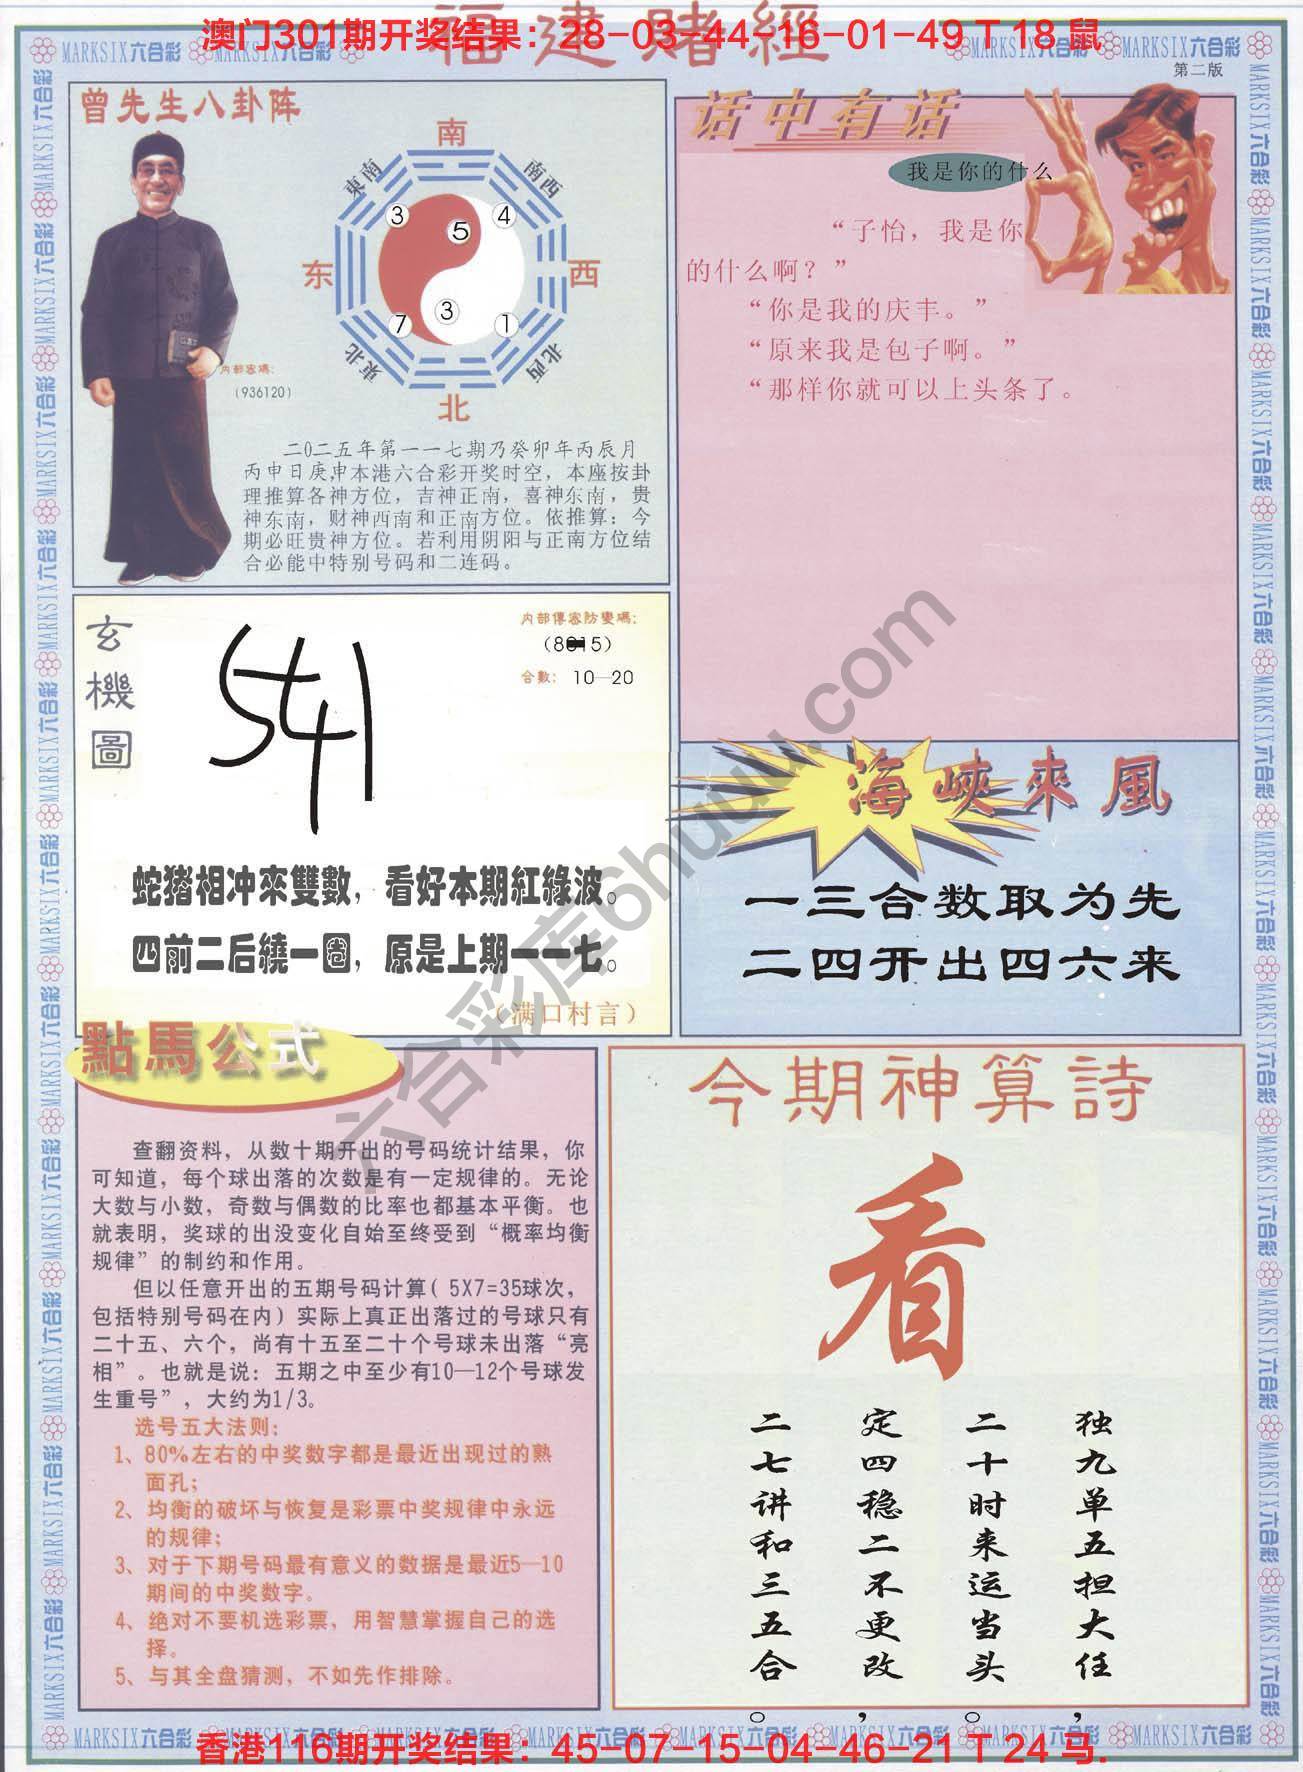 福建赌經
澳门301期开奖结果：28-03-44-16-01-49 T 18 鼠
MARKSIX六合彩
第二版
曾先生八卦阵
南
東南
南西
3
4
5
东
西
3
7
1
東北
北西
北
内部密碼：
（936120）
二0二五年第一一七期乃癸卯年丙辰月
丙申日庚申本港六合彩开奖时空，本座按卦
理推算各神方位，吉神正南，喜神东南，贵
神东南，财神西南和正南方位。依推算：今
期必旺贵神方位。若利用阴阳与正南方位结
合必能中特别号码和二连码。
话中有话
我是你的什么
“子怡，我是你
的什么啊？”
“你是我的庆丰。”
“原来我是包子啊。”
“那样你就可以上头条了。
玄機圖
541
内部傳密防變碼：
合數： 10—20
蛇猪相冲來雙數，看好本期紅綠波。
四前二后繞一圈，原是上期一一七。
（满口村言）
海峽來風
一三合数取为先
二四开出四六来
點馬公式
查翻资料，从数十期开出的号码统计结果，你
可知道，每个球出落的次数是有一定规律的。无论
大数与小数，奇数与偶数的比率也都基本平衡。也
就表明，奖球的出没变化自始至终受到“概率均衡
规律”的制约和作用。
但以任意开出的五期号码计算（5X7=35球次，
包括特别号码在内）实际上真正出落过的号球只有
二十五、六个，尚有十五至二十个号球未出落“亮
相”。也就是说：五期之中至少有10—12个号球发
生重号”，大约为1/3。
选号五大法则：
1、80%左右的中奖数字都是最近出现过的熟
面孔；
2、均衡的破坏与恢复是彩票中奖规律中永远
的规律；
3、对于下期号码最有意义的数据是最近5—10
期间的中奖数字。
4、绝对不要机选彩票，用智慧掌握自己的选
择。
5、与其全盘猜测，不如先作排除。
今期神算詩
看
独九单五担大任，
二十时来运当头。
定四稳二不更改，
二七讲和三五合。
六合彩库6huuu.com
香港116期开奖结果：45-07-15-04-46-21 T 24 马.